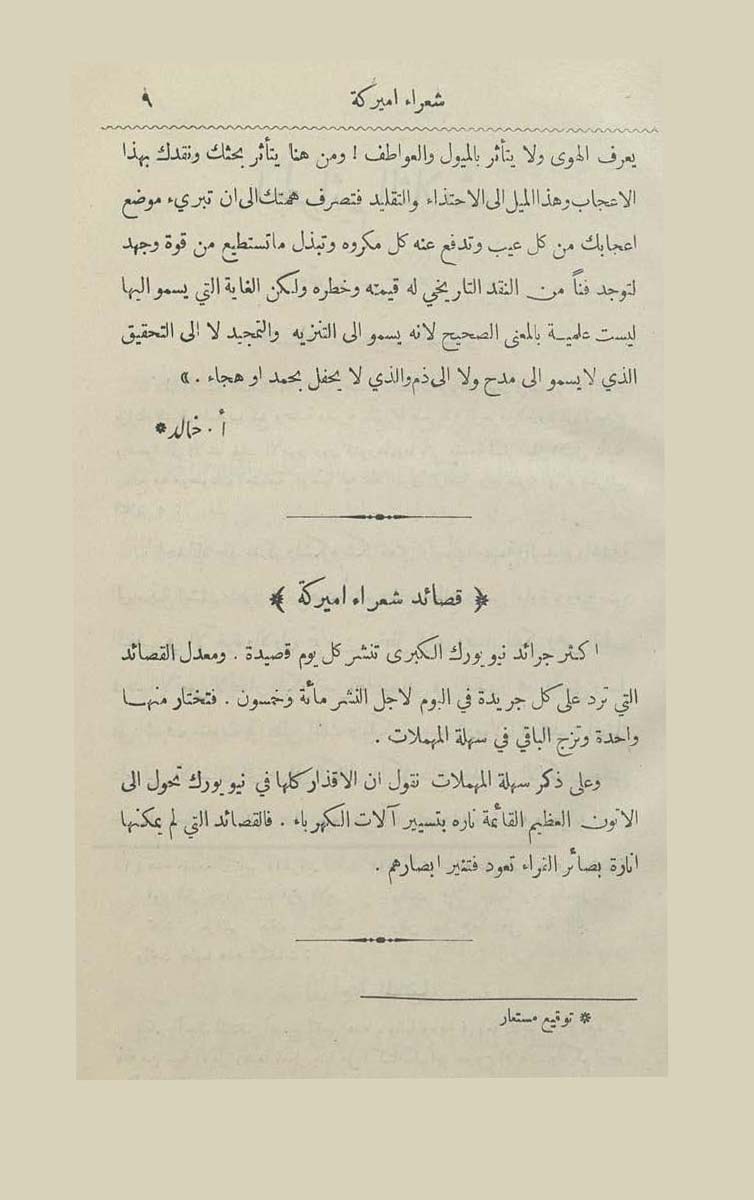 شعراء اميركة ٩
يعرف الهوى ولا يتأثر بالميول والعواطف ! ومن هنا يتأثر بحثك ونقدك بهذا
الاعجاب وهذا الميل الى الاحتذاء والتقليد فتصرف همتك الى ان تبريء موضع
اعجابك من كل عيب وتدفع عنه كل مكروه وتبذل ما تستطيع من قوة وجهد
لتوجد فناً من النقد التاريخي له قيمته وخطره ولكن الغاية التي يسمو اليها
ليست علمية بالمعنى الصحيح لانه يسمو الى التنزيه والتمجيد لا الى التحقيق
الذي لا يسمو الى مدح ولا الى ذم والذي لا يحفل بحمد او هجاء . »
أ . خالد *
﴿ قصائد شعراء اميركة ﴾
اكثر جرائد نيويورك الكبرى تنشر كل يوم قصيدة . ومعدل القصائد
التي ترد على كل جريدة في اليوم لاجل النشر مائة وخمسون . فتختار منها
واحدة وتزج الباقي في سهلة المهملات .
وعلى ذكر سهلة المهملات نقول ان الاقذار كلها في نيويورك تحول الى
الاتون العظيم القائمة ناره بتسيير آلات الكهرباء . فالقصائد التي لم يمكنها
انارة بصائر القراء تعود فتنير ابصارهم .
* توقيع مستعار